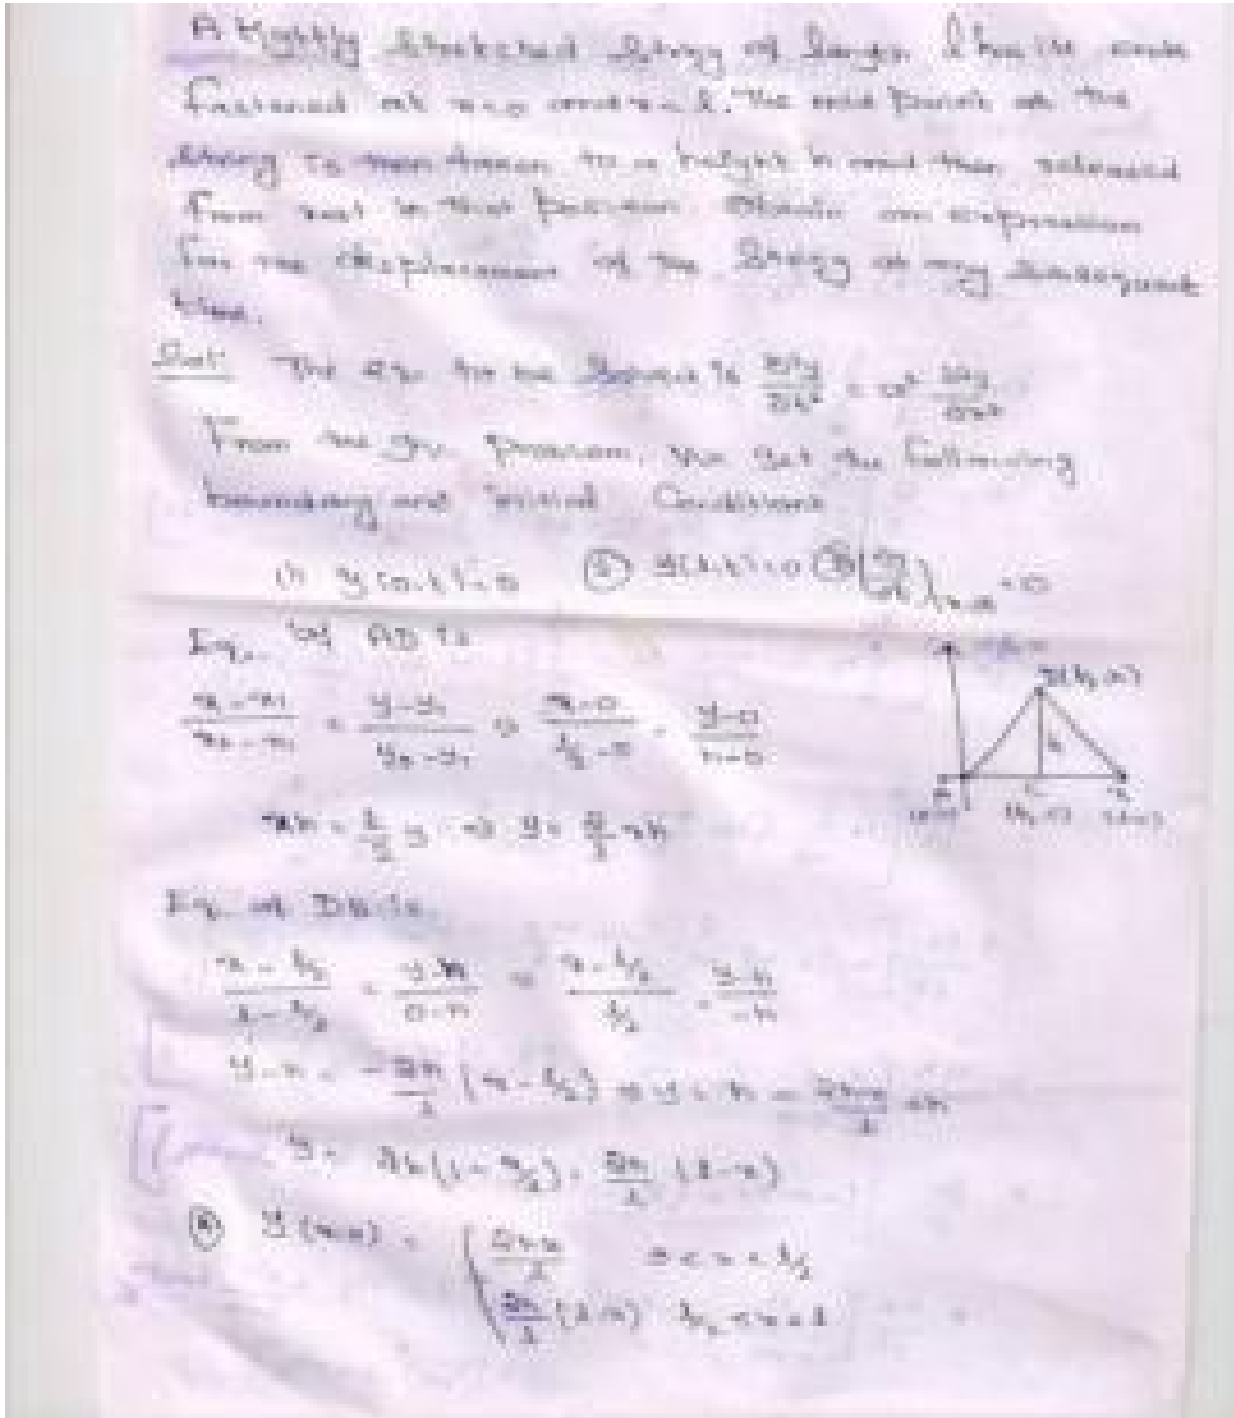 A tightly stretched string of length l has its ends
fastened at x=0 and x=l. The mid point of the
string is then taken to a height h and then released
from rest in that position. Obtain an expression
for the displacement of the string at any subsequent
time.
Sol: The eqn to be solved is ∂²y/∂t² = a² ∂²y/∂x²
From the gn. problem, we get the following
boundary and initial conditions
(i) y(0,t)=0 (2) y(l,t)=0 (3) (∂y/∂t) =0
Eqn. of AD is
(x-x₁)/(x₂-x₁) = (y-y₁)/(y₂-y₁) ⇒ (x-0)/(l/2-0) = (y-0)/(h-0)
D(l/2,h)
h
A C B
(l/2,0) (l,0)
xh = l/2 y ⇒ y = 2/l xh
Eqn. of DB is
(x-l/2)/(l-l/2) = (y-h)/(0-h) ⇒ (x-l/2)/(l/2) = (y-h)/(-h)
y-h = -2h/l (x-l/2) ⇒ y = h - 2hx/l +h
y = 2h(1-x/l) = 2h/l (l-x)
(4) y(x,0) = { 2hx/l 0<x<l/2
2h/l (l-x) l/2<x<l